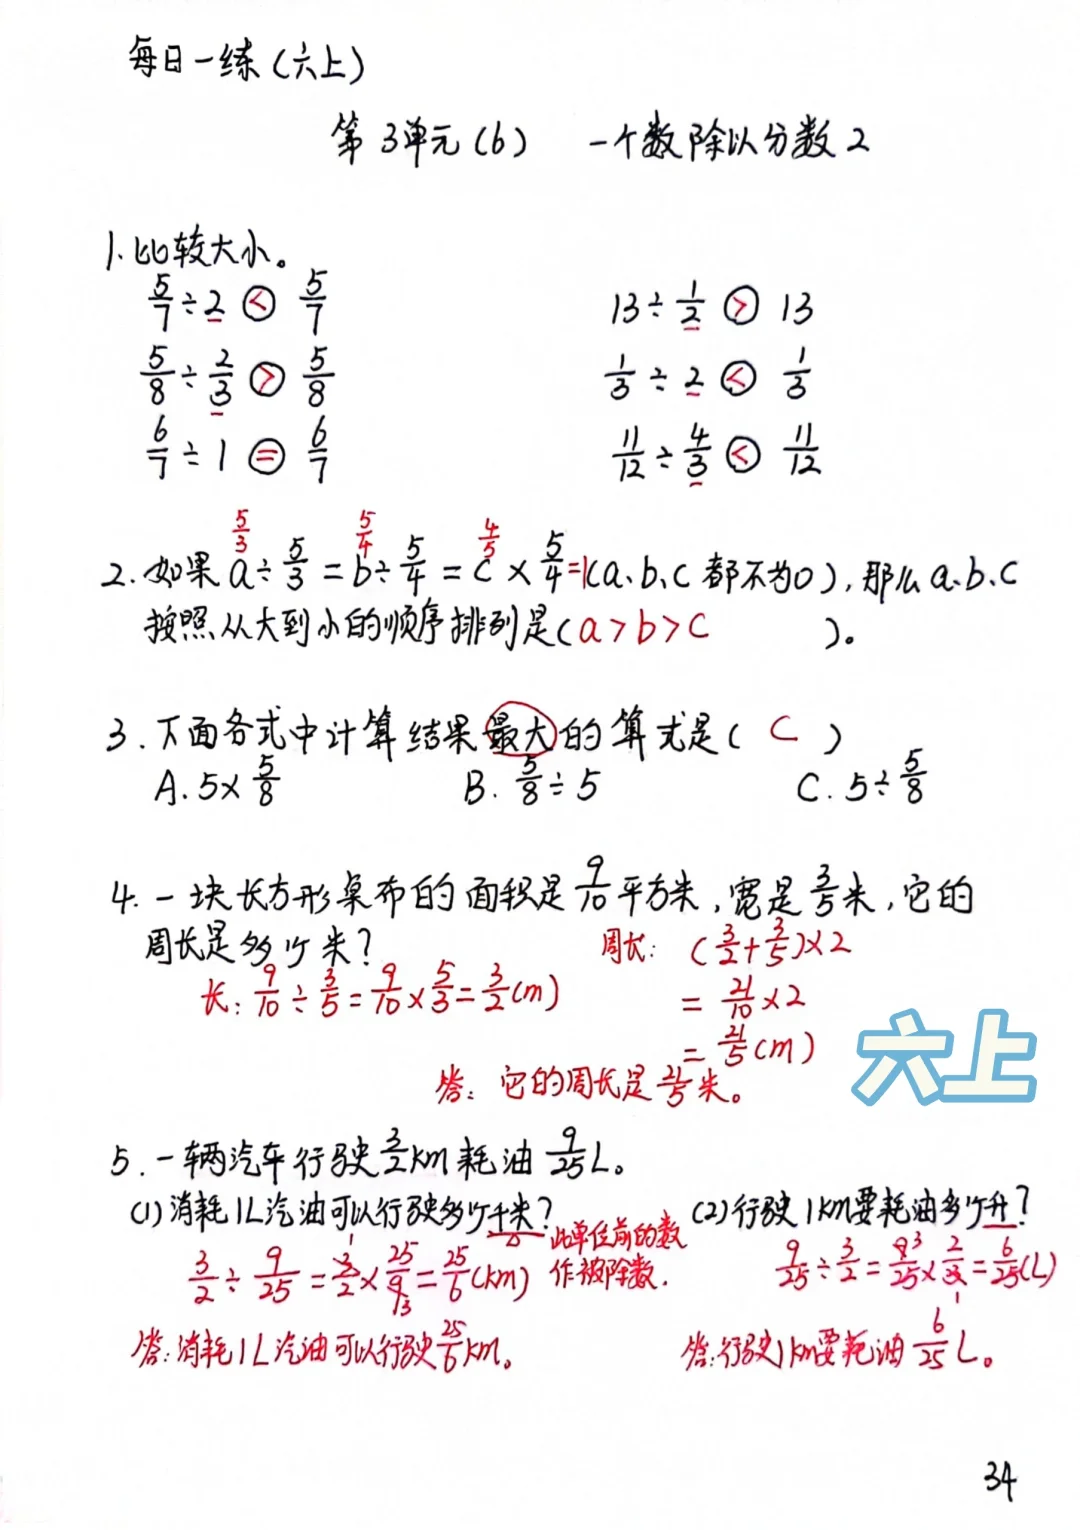 每日一练(六上)
第3单元(6) 一个数除以分数2
1.比较大小。
5/7÷2 < 5/7 13÷1/2 > 13
5/8÷2/3 > 5/8 1/3÷2 < 1/3
6/7÷1 = 6/7 11/12÷4/3 < 11/12
5/3 5/4 4/5
2.如果a÷5/3=b÷5/4=c×5/4=1(a、b、c都不为0),那么a、b、c
按照从大到小的顺序排列是(a>b>c)。
3.下面各式中计算结果最大的算式是( C )
A.5×5/8 B.5/8÷5 C.5÷5/8
4.一块长方形桌布的面积是9/10平方米,宽是3/5米,它的
周长是多少米?
长:9/10÷3/5=9/10×5/3=3/2(m)
周长: (3/2+3/5)×2
=21/10×2
=21/5(m)
答:它的周长是21/5米。
六上
5.一辆汽车行驶3/2km耗油9/25L。
(1)消耗1L汽油可以行驶多少千米? (2)行驶1km要耗油多少升?
此单位前的数
作被除数.
3/2÷9/25=3/2×25/9=25/6(km) 9/25÷3/2=9/25×2/3=6/25(L)
1 3 3 1
答:消耗1L汽油可以行驶25/6km。 答:行驶1km要耗油6/25L。
34